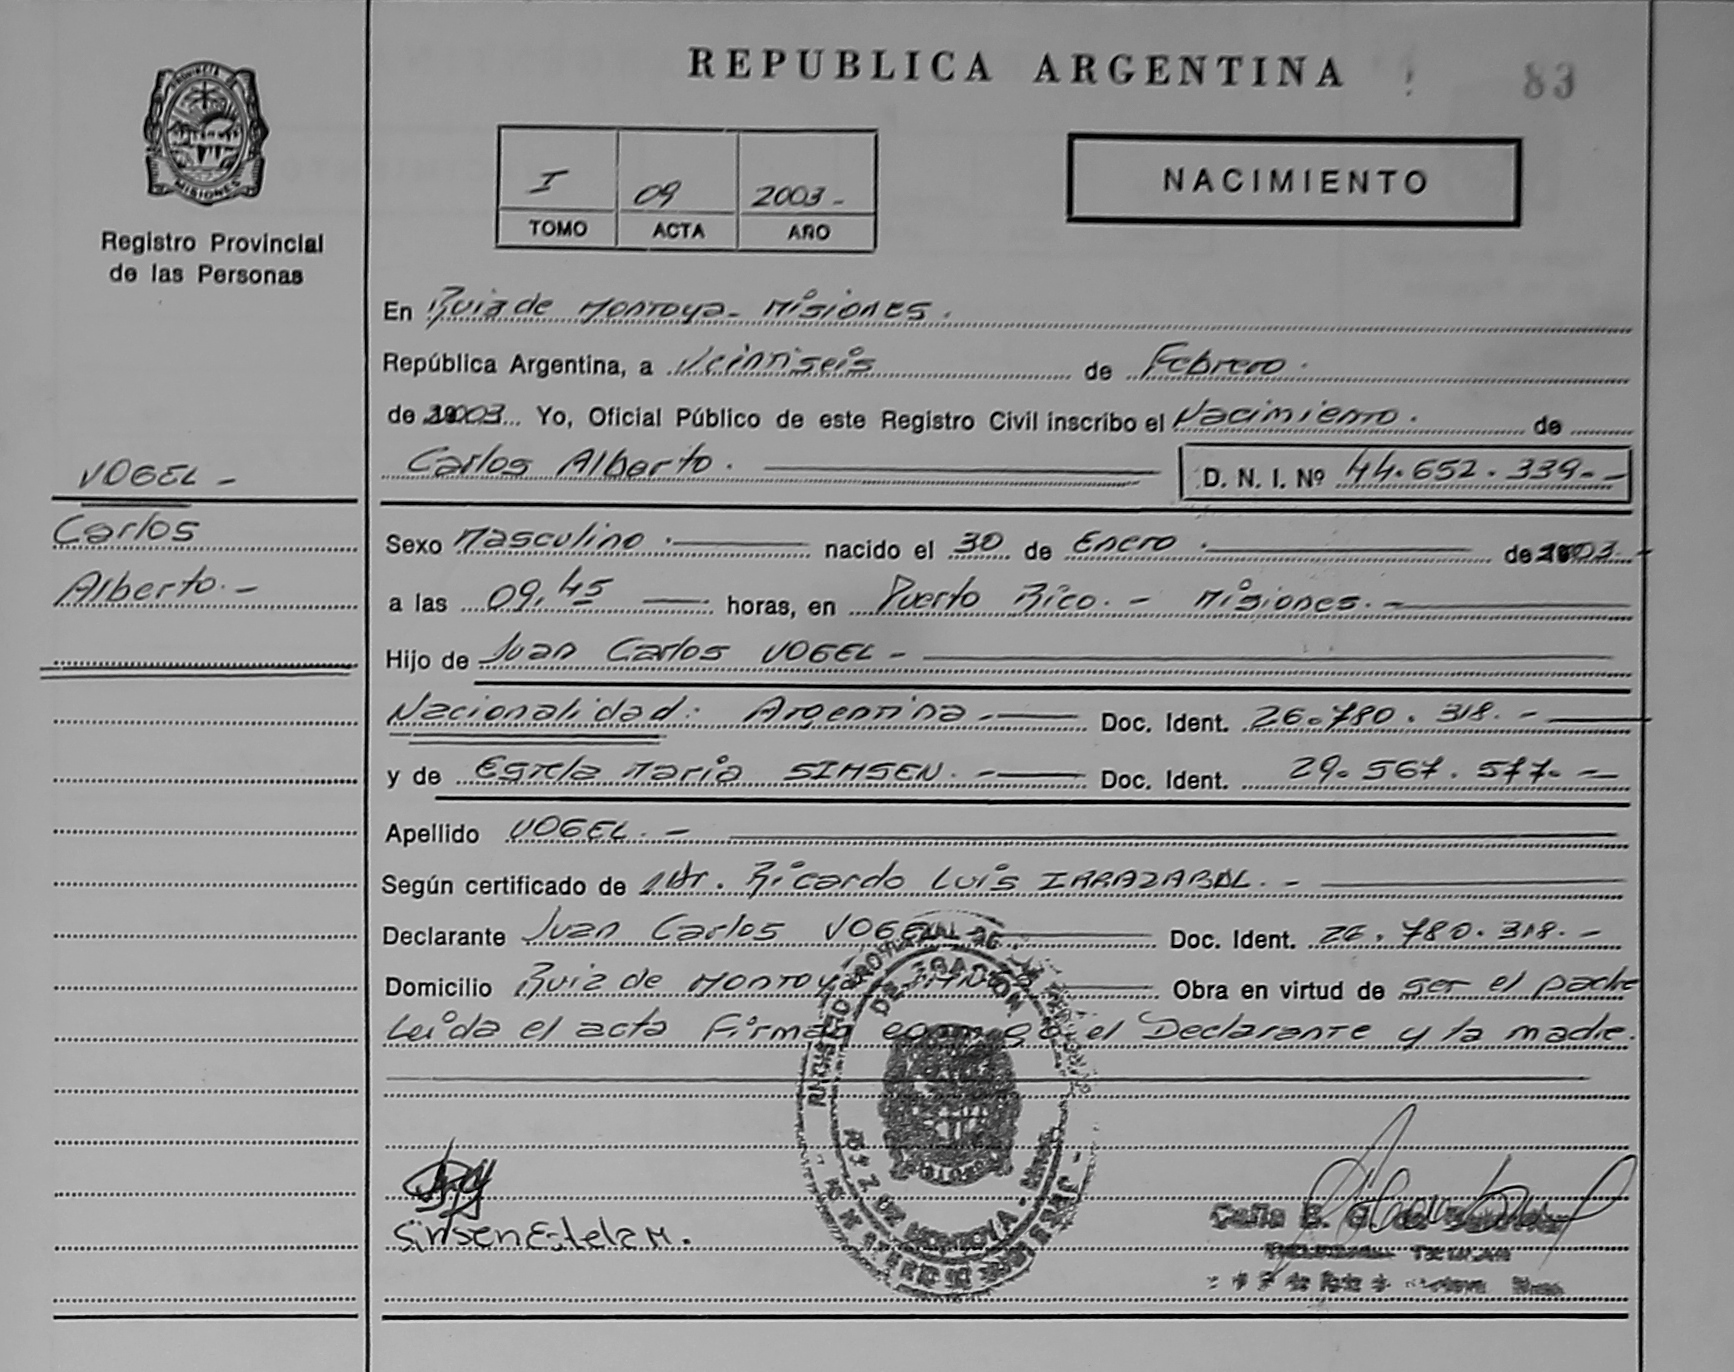 REPUBLICA ARGENTINA
83
PROVINCIA
MISIONES
Registro Provincial
de las Personas
I 09 2003-
TOMO ACTA AÑO
NACIMIENTO
En Ruiz de Montoya- Misiones.
República Argentina, a Veintiseis de Febrero.
de 2003 Yo, Oficial Público de este Registro Civil inscribo el Nacimiento. de
Carlos Alberto. D. N. I. Nº 44.652.339.-
VOGEL -
Carlos
Alberto.-
Sexo Masculino. nacido el 30 de Enero. de 2003.-
a las 09,45 horas, en Puerto Rico.- Misiones.-
Hijo de Juan Carlos VOGEL-
Nacionalidad: Argentina.- Doc. Ident. 26.780.318.-
y de Estela Maria SIMSEN.- Doc. Ident. 29.567.577.-
Apellido VOGEL.-
Según certificado de Dr. Ricardo Luis IRRAZABAL.-
Declarante Juan Carlos VOGEL Doc. Ident. 26.780.318.-
Domicilio Ruiz de Montoya Obra en virtud de ser el padre
Leida el acta Firman conmigo el Declarante y la madre.
RUIZ DE MONTOYA
Simsen Estela M.